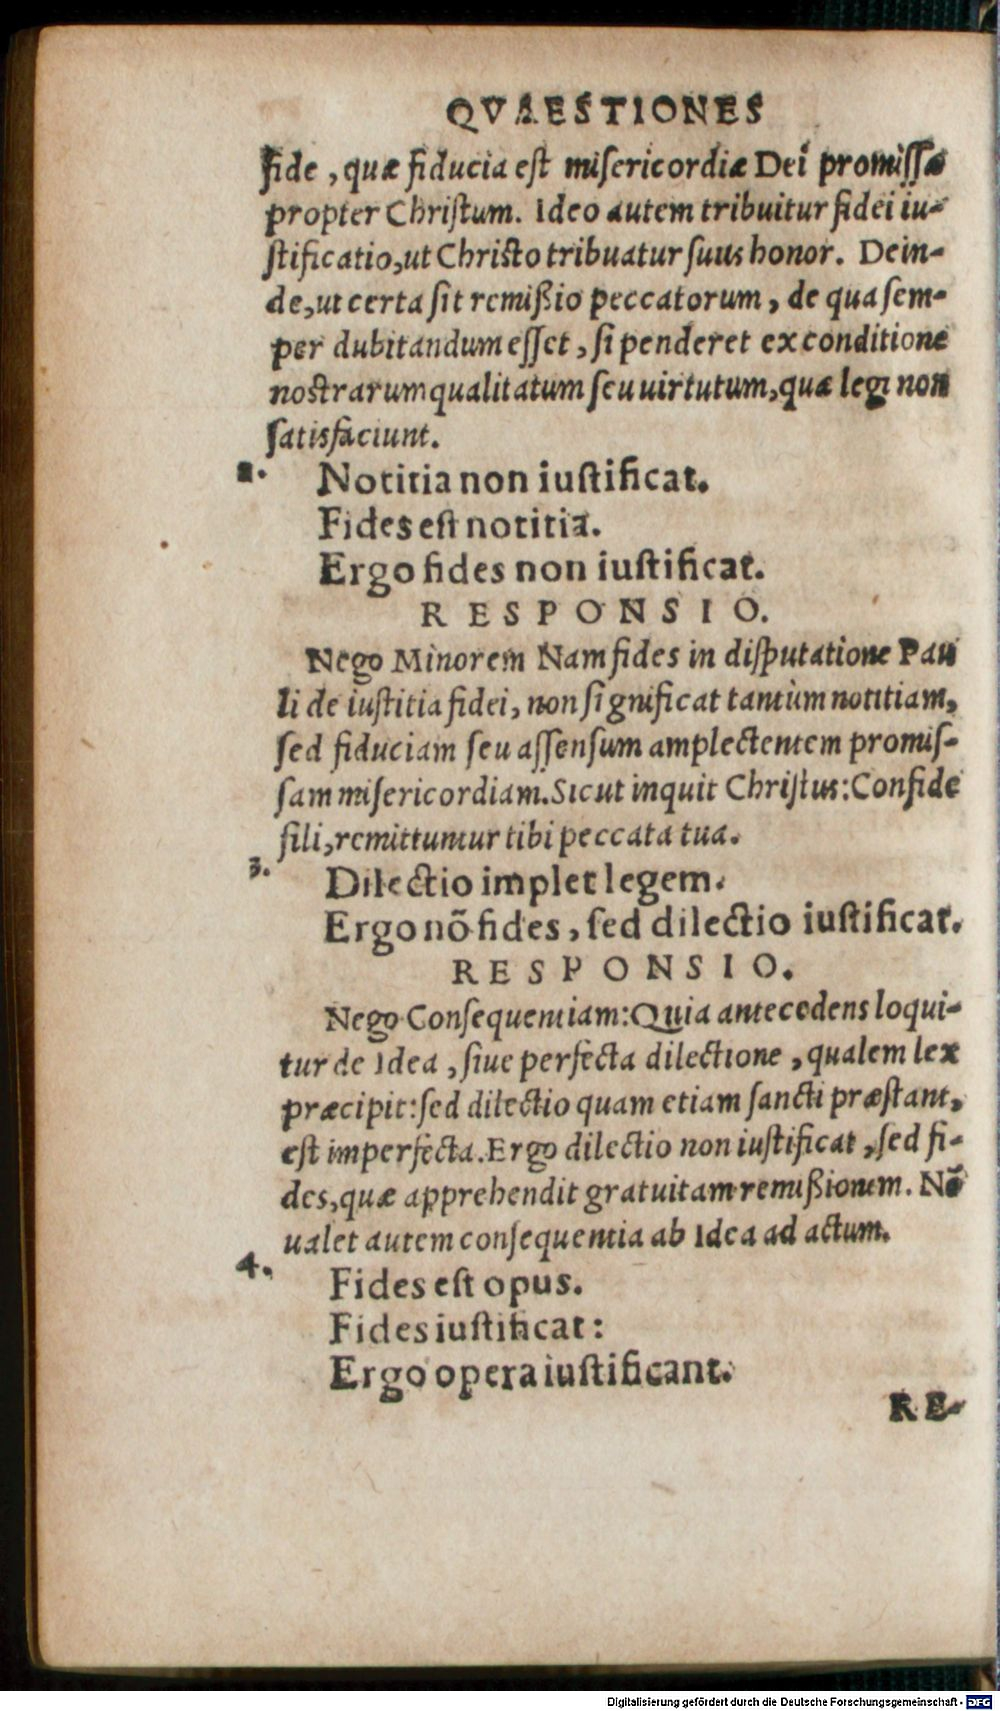 QVAESTIONES
fide, quæ fiducia est misericordiæ Dei promissæ
propter Christum. Ideo autem tribuitur fidei iu-
stificatio, ut Christo tribuatur suus honor. Dein-
de, ut certa sit remißio peccatorum, de qua sem-
per dubitandum esset, si penderet ex conditione
nostrarum qualitatum seu uirtutum, quæ legi non
satisfaciunt.
2. Notitia non iustificat.
Fides est notitia.
Ergo fides non iustificat.
RESPONSIO.
Nego Minorem Nam fides in disputatione Pau
li de iustitia fidei, non significat tantùm notitiam,
sed fiduciam seu assensum amplectentem promis-
sam misericordiam. Sicut inquit Christus: Confide
fili, remittuntur tibi peccata tua.
3. Dilectio implet legem.
Ergo nõ fides, sed dilectio iustificat.
RESPONSIO.
Nego Consequentiam: Quia antecedens loqui-
tur de Idea, siue perfecta dilectione, qualem lex
præcipit: sed dilectio quam etiam sancti præstant,
est imperfecta. Ergo dilectio non iustificat, sed fi-
des, quæ apprehendit gratuitam remißionem. Nõ
ualet autem consequentia ab Idea ad actum.
4. Fides est opus.
Fides iustificat:
Ergo opera iustificant.
RE-
Digitalisierung gefördert durch die Deutsche Forschungsgemeinschaft - DFG